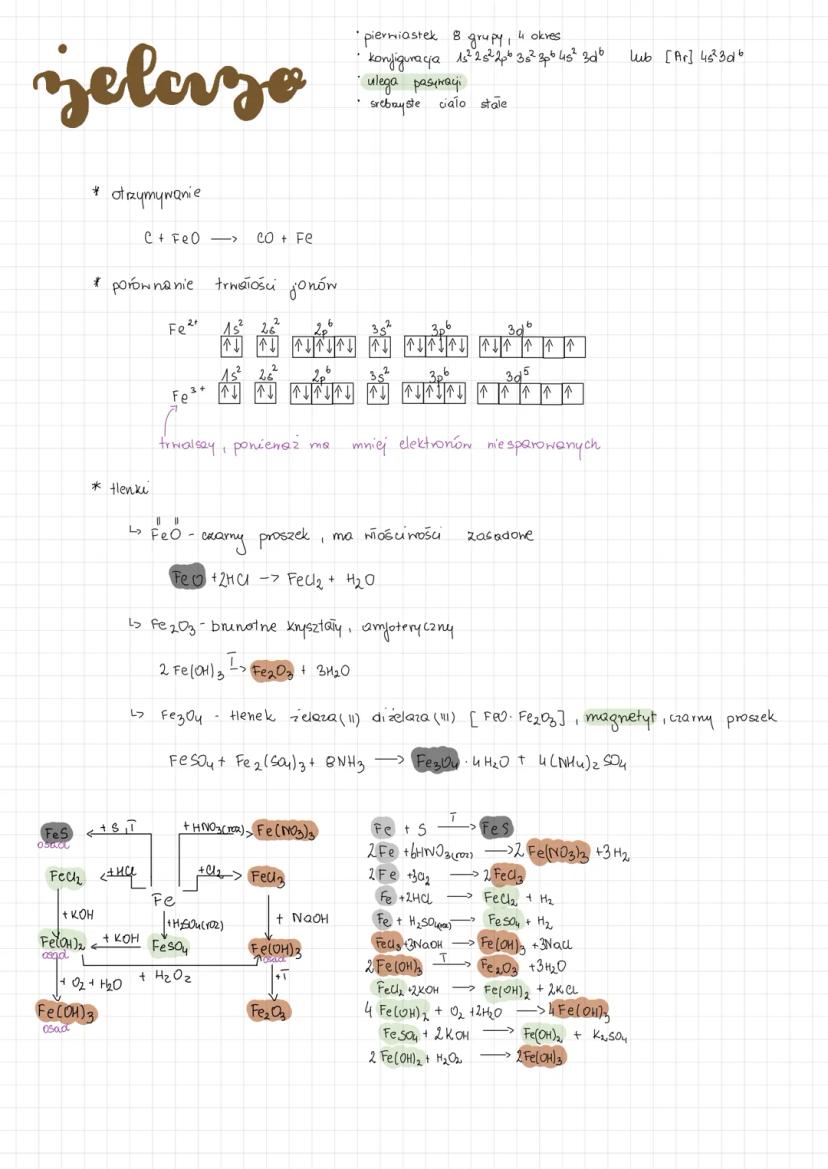 żelazo
· pierwiastek 8 grupy, 4 okres
· konfiguracja 1s² 2s² 2p⁶ 3s² 3p⁶ 4s² 3d⁶ lub [Ar] 4s² 3d⁶
· ulega pasywacji
· srebrzyste ciało stałe
* otrzymywanie
C + FeO → CO + Fe
* porównanie trwałości jonów
1s² 2s² 2p⁶ 3s² 3p⁶ 3d⁶
Fe²⁺ ↑↓ ↑↓ ↑↓↑↓↑↓ ↑↓ ↑↓↑↓↑↓ ↑↓ ↑ ↑ ↑ ↑
1s² 2s² 2p⁶ 3s² 3p⁶ 3d⁵
Fe³⁺ ↑↓ ↑↓ ↑↓↑↓↑↓ ↑↓ ↑↓↑↓↑↓ ↑ ↑ ↑ ↑ ↑
trwalszy, ponieważ ma mniej elektronów niesparowanych
* tlenki
↳ FeO - czarny proszek, ma właściwości zasadowe
FeO + 2HCl -> FeCl₂ + H₂O
↳ Fe₂O₃ - brunatne kryształy, amfoteryczny
2 Fe(OH)₃ T-> Fe₂O₃ + 3H₂O
↳ Fe₃O₄ - tlenek żelaza(II) diżelaza(III) [FeO · Fe₂O₃], magnetyt, czarny proszek
FeSO₄ + Fe₂(SO₄)₃ + 8NH₃ → Fe₃O₄ · 4H₂O + 4(NH₄)₂SO₄
FeS + S, T + HNO₃(roz) Fe(NO₃)₃
osad
FeCl₂ + HCl + Cl₂ FeCl₃
Fe
+ KOH + H₂SO₄(roz) + NaOH
Fe(OH)₂ + KOH FeSO₄ Fe(OH)₃
osad osad
+ O₂ + H₂O + H₂O₂ + T
Fe(OH)₃ Fe₂O₃
osad
Fe + S T→ FeS
2Fe + 6HNO₃(roz) → 2 Fe(NO₃)₃ + 3H₂
2Fe + 3Cl₂ → 2 FeCl₃
Fe + 2HCl → FeCl₂ + H₂
Fe + H₂SO₄(roz) → FeSO₄ + H₂
FeCl₃ + 3NaOH → Fe(OH)₃ + 3NaCl
2Fe(OH)₃ T→ Fe₂O₃ + 3H₂O
FeCl₂ + 2KOH → Fe(OH)₂ + 2KCl
4 Fe(OH)₂ + O₂ + 2H₂O → 4 Fe(OH)₃
FeSO₄ + 2KOH → Fe(OH)₂ + K₂SO₄
2 Fe(OH)₂ + H₂O₂ → 2Fe(OH)₃